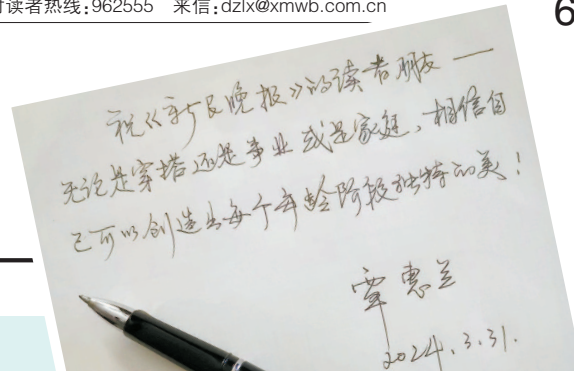 读者热线:962555 来信:dzlx@xmwb.com.cn
6
祝《新民晚报》的读者朋友——
无论是穿搭还是事业或是家庭,相信自
己可以创造出每个年龄阶段独特的美!
覃惠兰
2024.3.31.